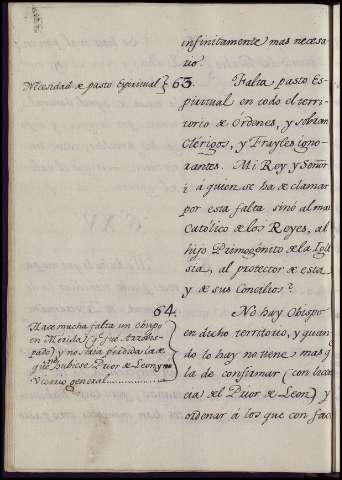 infinitamente mas necesa
rio.
Necesidad de pasto Espiritual
63.
Falta pasto Es-
piritual en todo el terri-
torio de Ordenes, y sobran
Clerigos, y Frayles igno-
rantes. Mi Rey y Señor
i a quien se ha de clamar
por esta falta sinó al mas
Católico de los Reyes, al
hijo Primogénito de la Igle
sia, al protector de esta
y de sus Concilios?
64.
Hace mucha falta un obispo
en Mérida (q.e fué Arzobis-
pado) y no sería perdida la de
que hubiese Prior de Leon y no
Vicario general
No hay Obispo
en dicho territorio, y quan-
do lo hay no tiene mas q.e
la de confirmar (con licen
cia del Prior de Leon) y
ordenar á los que con fac